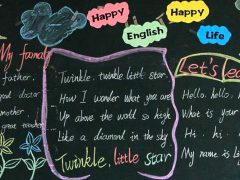 Happy
Happy
English
Life
My
father.
good doctor
mother
great teacher
Twinkle, twinkle little star.
How I wonder what you are
Up above the world so high
Like a diamond in the sky
Twinkle, little star
Let's
Hello. hello.
What is your
Hi. hi.
My name is